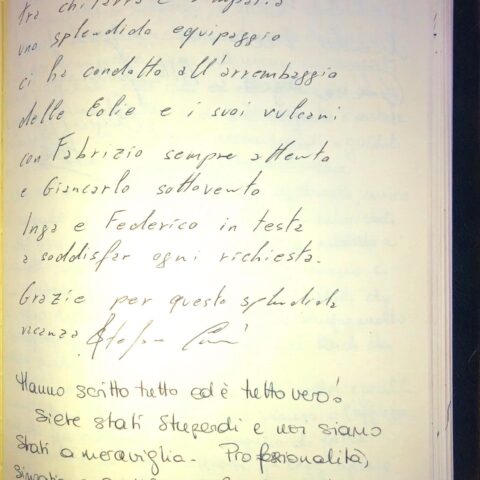 tra chitarra e
uno splendido equipaggio
ci ha condotto all'arrembaggio
delle Eolie e i suoi vulcani
con Fabrizio sempre attento
e Giancarlo sottovento
Inga e Federico in testa
a soddisfar ogni richiesta.
Grazie per questa splendida
vacanza Stefano
Hanno scritto tutto ed è tutto vero!
Siete stati stupendi e noi siamo
stati a meraviglia. Professionalità,